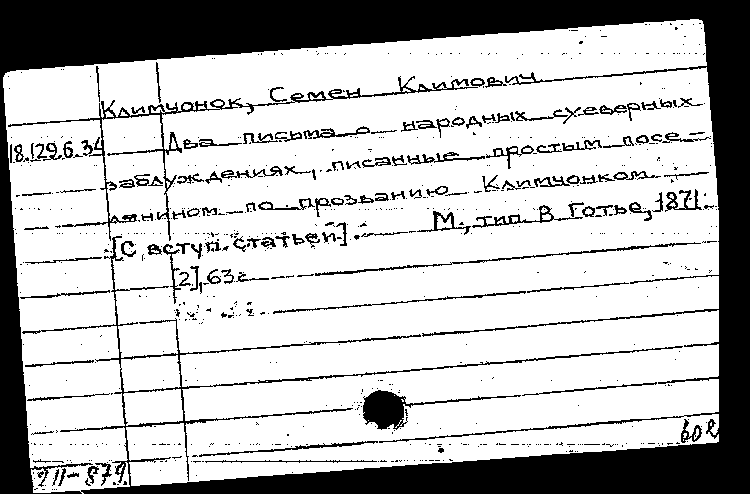 Климчонок, Семен Климович
18.129.6.34 Два письма о народных суеверных
заблуждениях, писанные простым посе-
лянином по прозванию Климчонком.
[С вступ. статьей]. М., тип. В. Готье, 1871.
[2], 63 с.
211-879